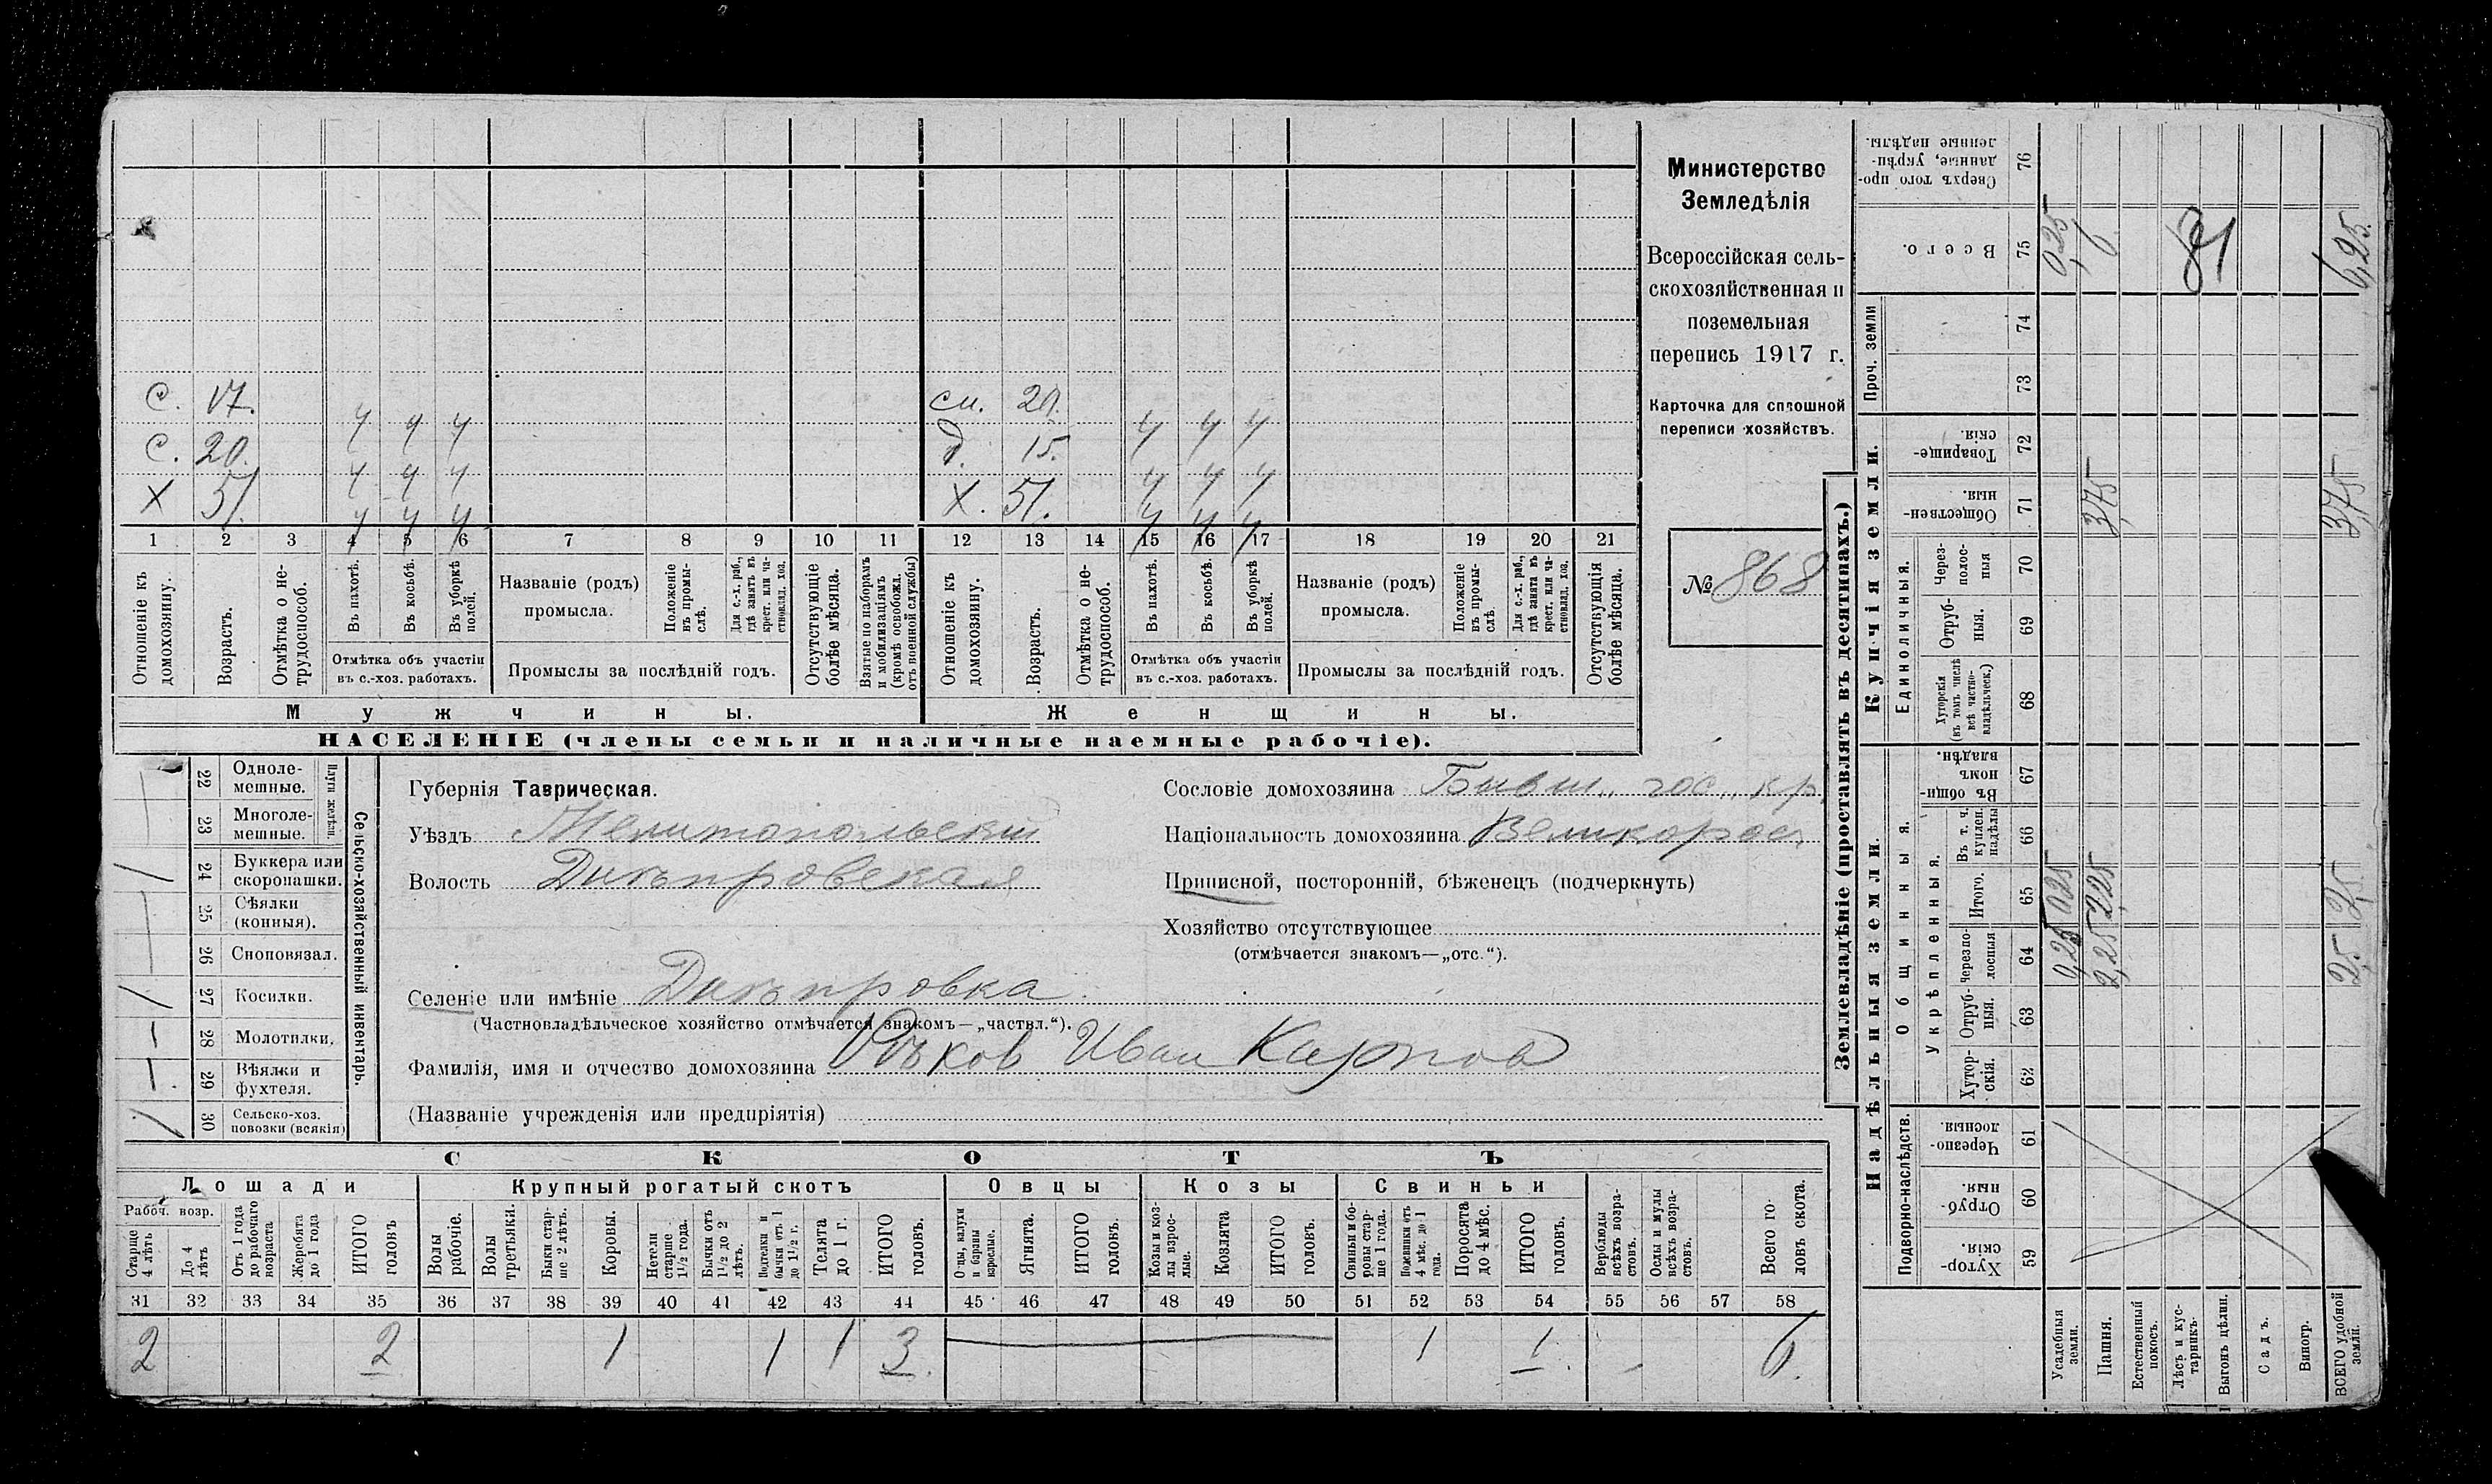 С. 17. ч ч ч
си. 20. ч ч ч
С. 20. ч ч ч
д. 15. ч ч ч
Х 51. ч ч ч
Х. 51. ч ч ч
1 2 3 4 5 6 7 8 9 10 11 12 13 14 15 16 17 18 19 20 21
Отношеніе къ домохозяину.
Возрастъ.
Отмѣтка о нетрудоспособ.
Въ пахотѣ.
Въ косьбѣ.
Въ уборкѣ полей.
Отмѣтка объ участіи
въ с.-хоз. работахъ.
Названіе (родъ)
промысла.
Положеніе въ промыслѣ.
Для с.-х. раб., гдѣ занятъ въ крест. или частновлад. хоз.
Промыслы за послѣдній годъ.
Отсутствующіе болѣе мѣсяца.
Взятые по наборамъ и мобилизаціямъ (кромѣ освобожд. отъ военной службы)
Отношеніе къ домохозяину.
Возрастъ.
Отмѣтка о нетрудоспособ.
Въ пахотѣ.
Въ косьбѣ.
Въ уборкѣ полей.
Отмѣтка объ участіи
въ с.-хоз. работахъ.
Названіе (родъ)
промысла.
Положеніе въ промыслѣ.
Для с.-х. раб., гдѣ занята въ крест. или частновлад. хоз.
Промыслы за послѣдній годъ.
Отсутствующія болѣе мѣсяца.
Мужчины.
Женщины.
НАСЕЛЕНІЕ (члены семьи и наличные наемные рабочіе).
Министерство
Земледѣлія
Всероссійская сель-
скохозяйственная и
поземельная
перепись 1917 г.
Карточка для сплошной
переписи хозяйствъ.
№ 868
22 Одноле-
мешные.
23 Многоле-
мешные.
Плуги желѣзн.
24 Буккера или
скоропашки.
25 Сѣялки
(конныя).
26 Сноповязал.
27 Косилки.
28 Молотилки.
29 Вѣялки и
фухтеля.
30 Сельско-хоз.
повозки (всякія)
Сельско-хозяйственный инвентарь.
Губернія Таврическая.
Уѣздъ Мелитопольскій
Волость Днѣпровская
Селеніе или имѣніе Днѣпровка.
(Частновладѣльческое хозяйство отмѣчается знакомъ—„частвл.“).
Фамилія, имя и отчество домохозяина Иван Карпов
(Названіе учрежденія или предпріятія)
Сословіе домохозяина Бывш. гос. кр.
Національность домохозяина Великорос.
Приписной, посторонній, бѣженецъ (подчеркнуть)
Хозяйство отсутствующее
(отмѣчается знакомъ—„отс.“).
СКОТЪ
Лошади
Крупный рогатый скотъ
Овцы
Козы
Свиньи
Рабоч. возр.
Старше 4 лѣтъ
До 4 лѣтъ
Отъ 1 года до рабочаго возраста
Жеребята до 1 года
ИТОГО головъ
Волы рабочіе.
Волы третьяки.
Быки старше 2 лѣтъ.
Коровы.
Нетели старше 1½ года.
Бычки отъ 1½ до 2 лѣтъ.
Подтелки и бычки отъ 1 до 1½ г.
Телята до 1 г.
ИТОГО головъ.
Овцы, валухи и бараны взрослые.
Ягнята.
ИТОГО головъ.
Козы и козлы взрослые.
Козлята
ИТОГО головъ.
Свиньи и боровы старше 1 года.
Подсвинки отъ 4 мѣс. до 1 года.
Поросята до 4 мѣс.
ИТОГО головъ.
Верблюды всѣхъ возрастовъ.
Ослы и мулы всѣхъ возрастовъ.
Всего головъ скота.
31 32 33 34 35 36 37 38 39 40 41 42 43 44 45 46 47 48 49 50 51 52 53 54 55 56 57 58
2 2 1 1 1 3. 1 1. 6.
Землевладѣніе (проставлять въ десятинахъ.)
Купчія земли.
Надѣльныя земли.
Сверхъ того проданные, укрѣпленные надѣлы. 76
Всего. 75 0,25 6 6,25.
Проч. земли
74
73
Товарищескія 72
Общественныя. 71 3,75 3,75
Единоличныя.
Черезполосныя 70
Отрубныя. 69
Хуторскія (въ томъ числѣ всѣ частновладѣльческ.) 68
Общинныя.
Въ общинномъ владѣн. 67
Укрѣпленныя.
Въ т. ч. куплен. надѣлы 66
Итого. 65 0,25 2,25 2,5
Черезполосныя 64 0,25 2,25 2,5
Отрубныя. 63
Хуторскія. 62
Подворно-наслѣдств.
Черезполосныя 61
Отрубныя. 60
Хуторскія. 59
Усадебныя земли.
Пашня.
Естественный покосъ.
Лѣсъ и кустарникъ.
Выгонъ цѣлин.
Садъ.
Виногр.
ВСЕГО удобной земли.